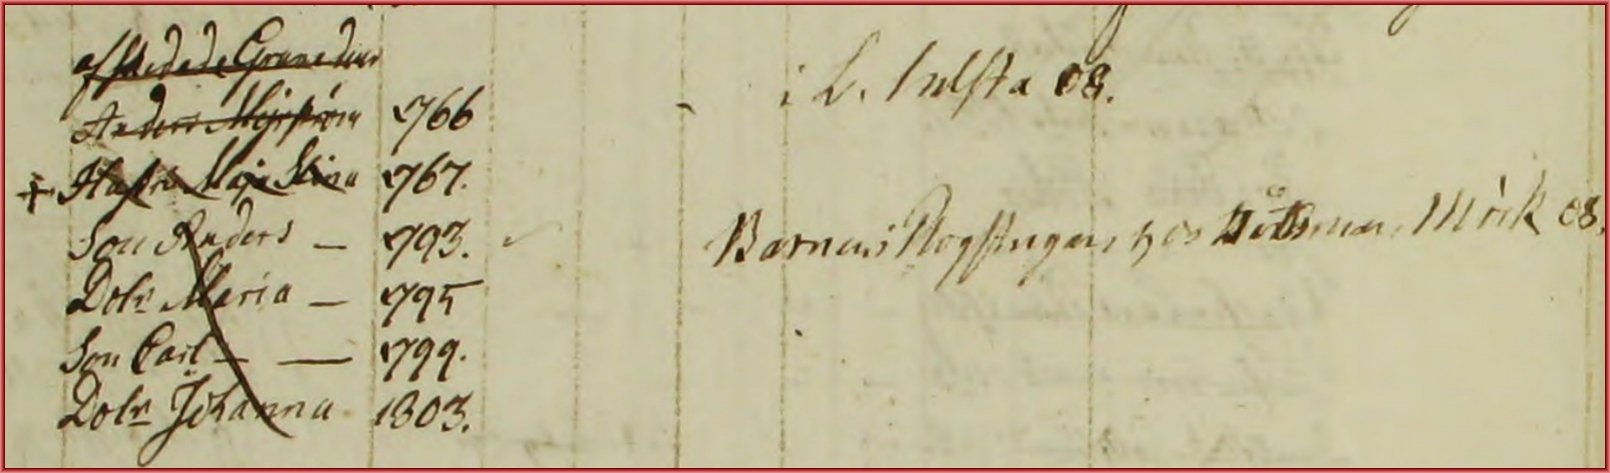 afskedade Grenadier
Anders Mejström 766
i L. Mellsta 08.
+ Hustru Maja Stina 767.
Son Anders — 793.
Barnen hos Mörk 08.
Dotr Maria — 795
Son Carl — — 799.
Dotr Johanna 1803.